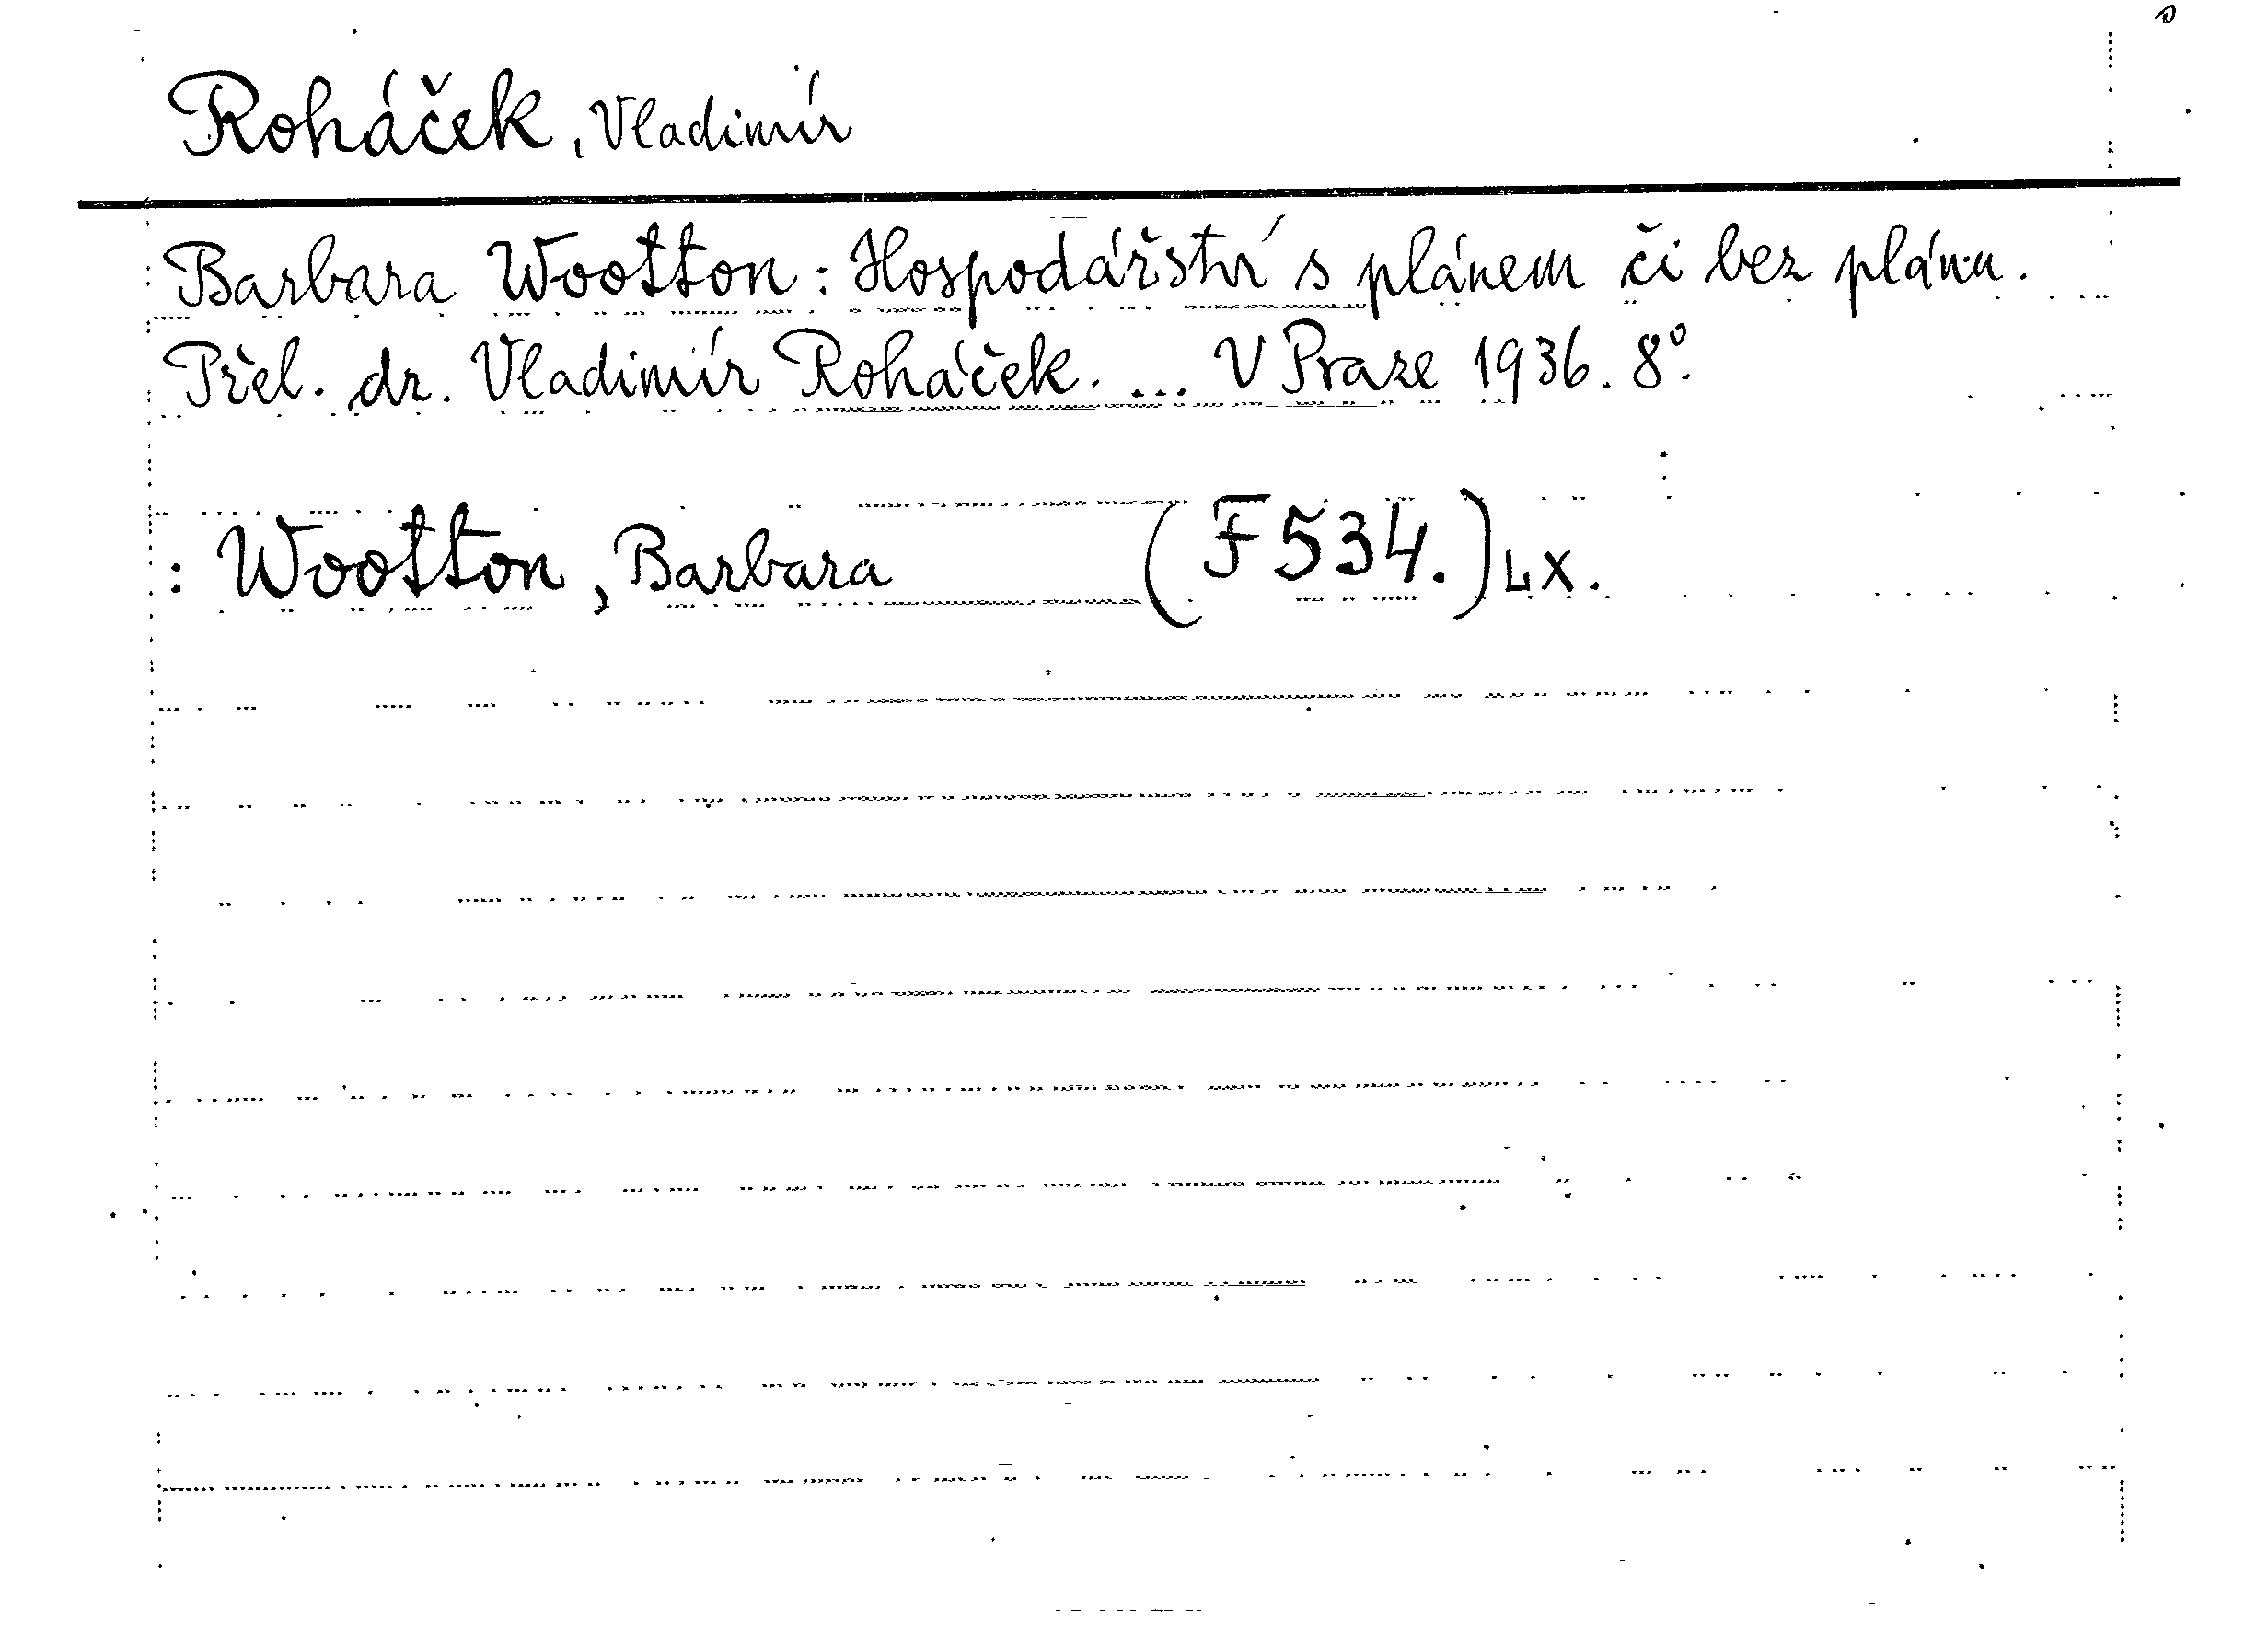 Roháček, Vladimír
Barbara Wootton: Hospodářství s plánem či bez plánu.
Přel. dr. Vladimír Roháček. ... V Praze 1936. 8°.
: Wootton, Barbara (F 534.) LX.